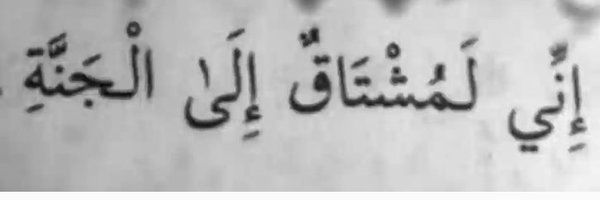 إِنِّي لَمُشْتَاقٌ إِلَىٰ الْجَنَّةِ